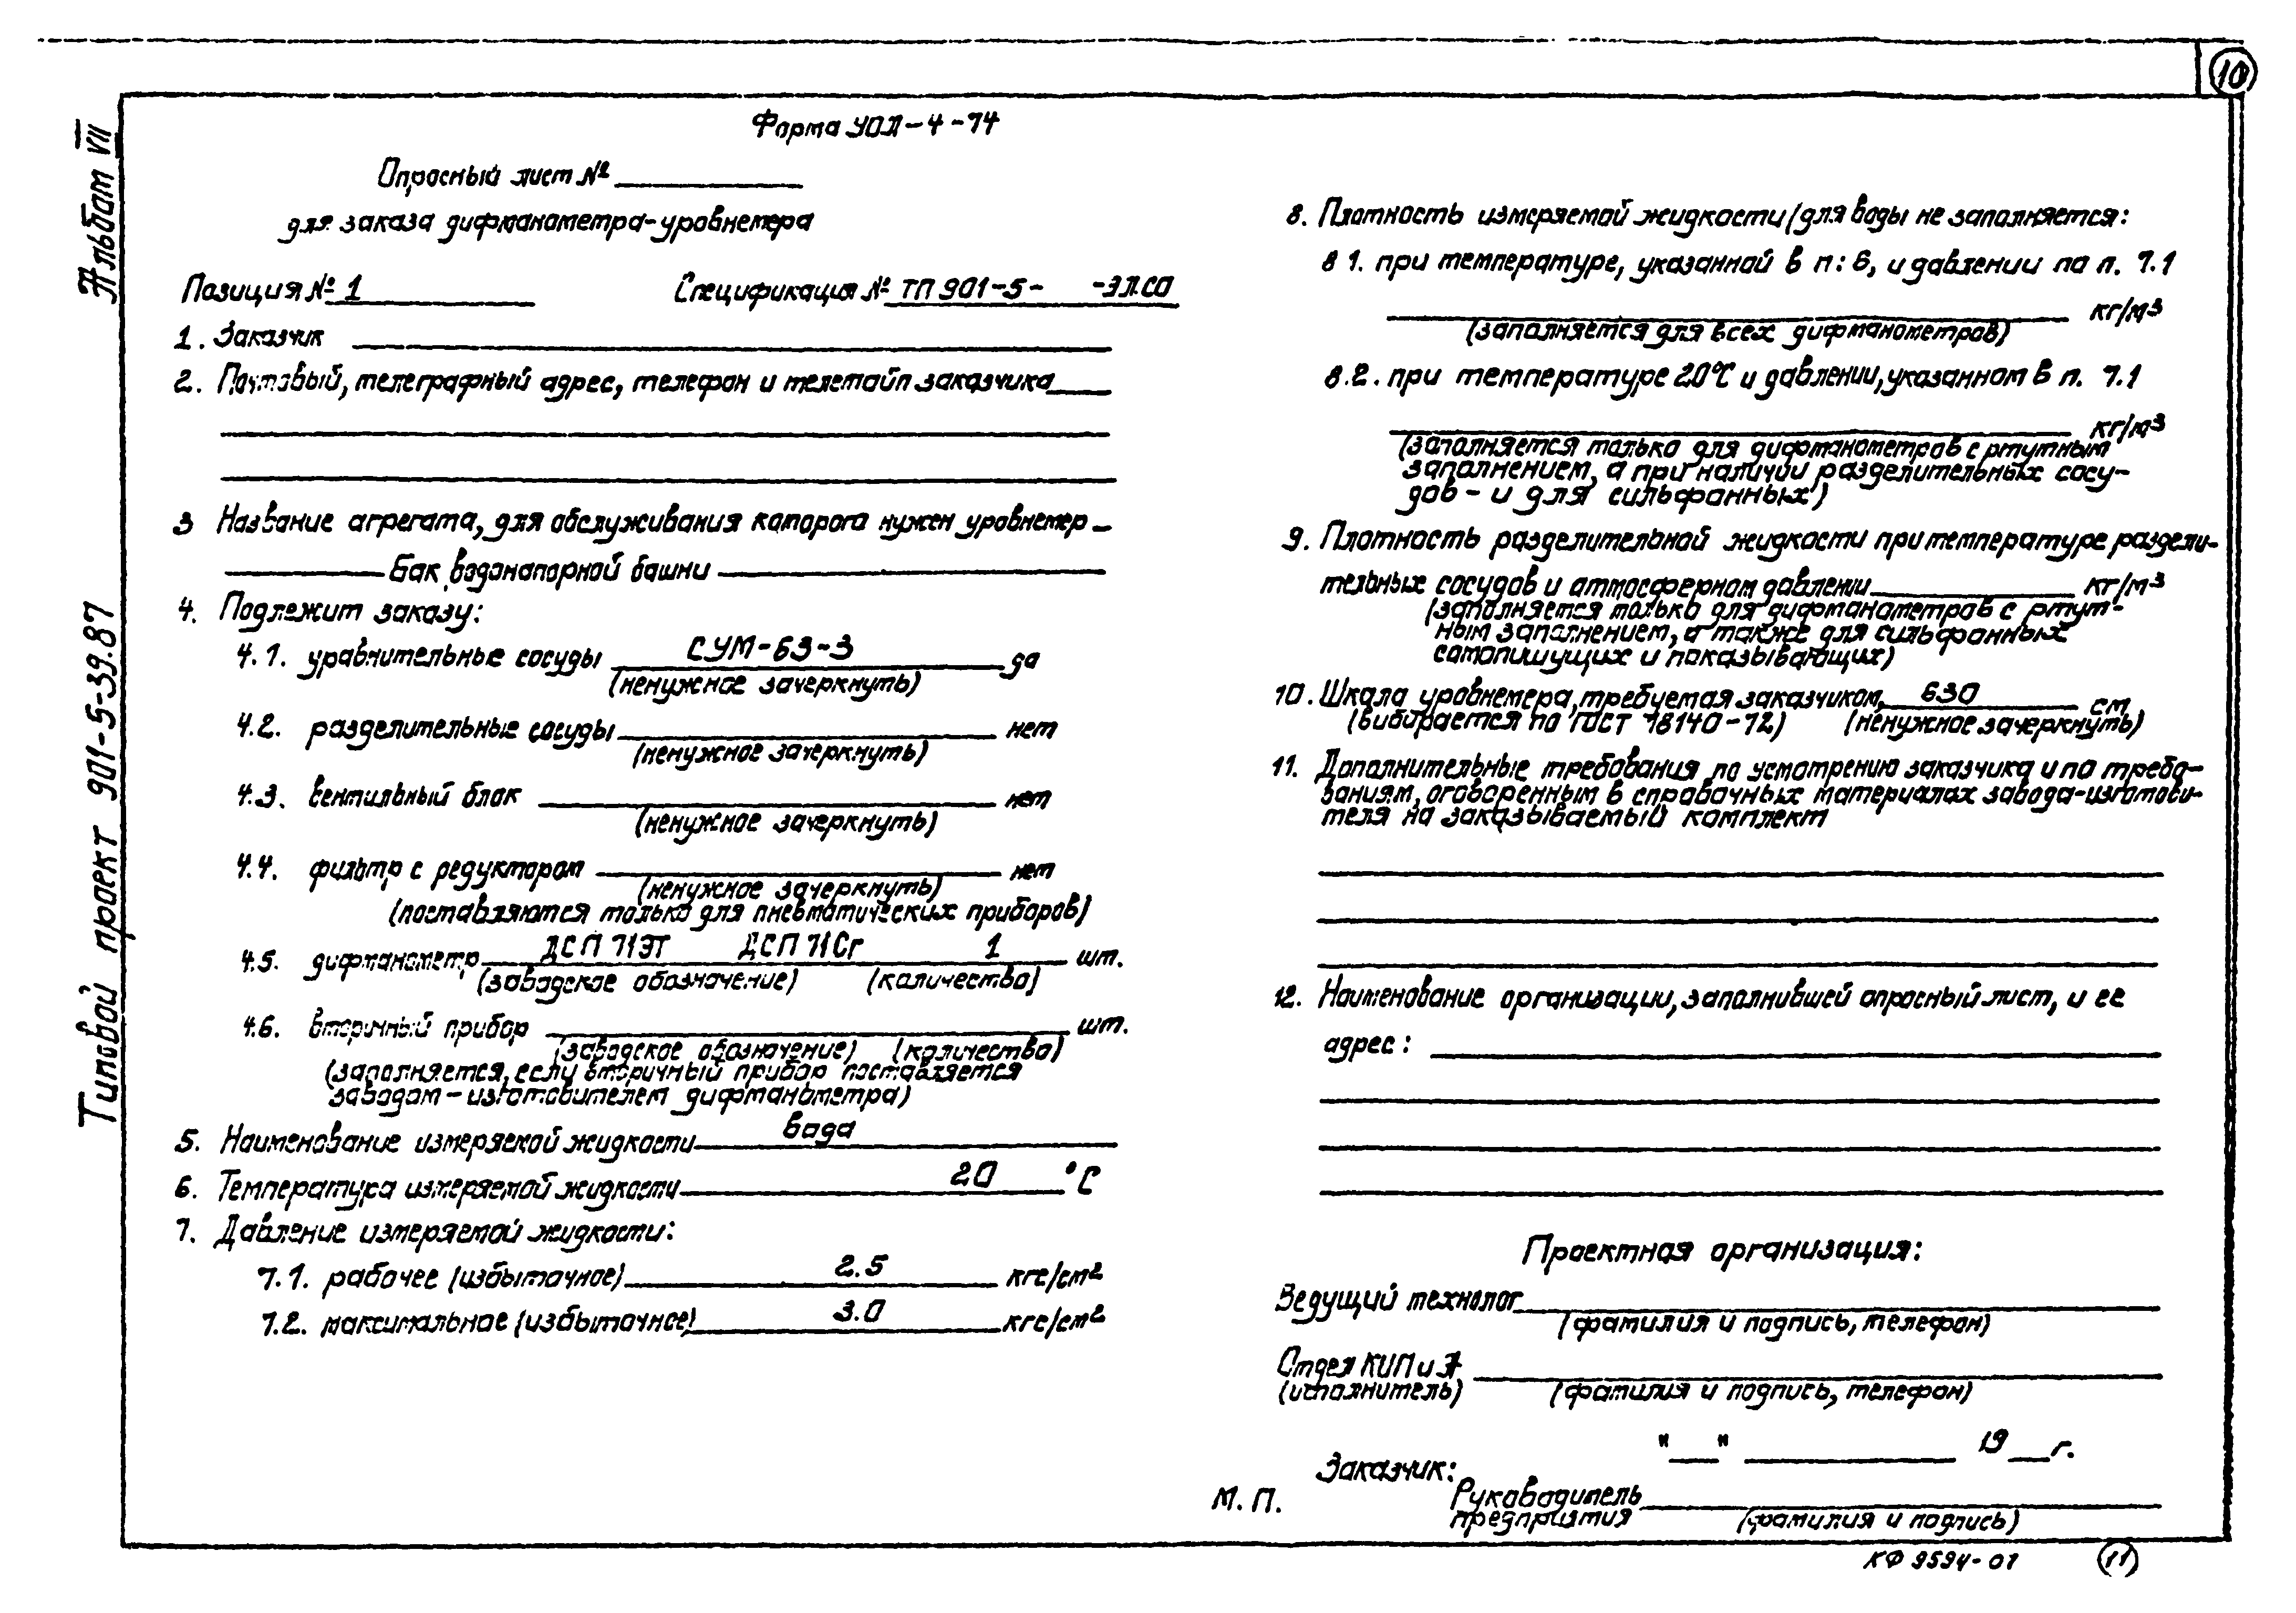 10
Альбом VII
Типовой проект 901-5-39.87
Форма УОЛ-4-74
Опросный лист №
для заказа дифманометра-уровнемера
Позиция № 1 Спецификация № ТП 901-5- -ЭЛ.СО
1. Заказчик
2. Почтовый, телеграфный адрес, телефон и телетайп заказчика
3 Название агрегата, для обслуживания которого нужен уровнемер -
Бак водонапорной башни
4. Подлежит заказу:
4.1. уравнительные сосуды СУМ-63-3 да
(ненужное зачеркнуть)
4.2. разделительные сосуды нет
(ненужное зачеркнуть)
4.3. вентильный блок нет
(ненужное зачеркнуть)
4.4. фильтр с редуктором нет
(ненужное зачеркнуть)
(поставляются только для пневматических приборов)
4.5. дифманометр ДСП 71ЭТ ДСП 71Сг 1 шт.
(заводское обозначение) (количество)
4.6. вторичный прибор шт.
(заводское обозначение) (количество)
(заполняется, если вторичный прибор поставляется
заводом-изготовителем дифманометра)
5. Наименование измеряемой жидкости вода
6. Температура измеряемой жидкости 20 °С
7. Давление измеряемой жидкости:
7.1. рабочее (избыточное) 2.5 кгс/см²
7.2. максимальное (избыточное) 3.0 кгс/см²
8. Плотность измеряемой жидкости (для воды не заполняется:
8 1. при температуре, указанной в п: 6, и давлении по п. 7.1
кг/м³
(заполняется для всех дифманометров)
8.2. при температуре 20°С и давлении, указанном в п. 7.1
кг/м³
(заполняется только для дифманометров с ртутным
заполнением, а при наличии разделительных сосу-
дов - и для сильфонных)
9. Плотность разделительной жидкости при температуре раздели-
тельных сосудов и атмосферном давлении кг/м³
(заполняется только для дифманометров с ртут-
ным заполнением, а также для сильфонных
самопишущих и показывающих)
10. Шкала уровнемера, требуемая заказчиком, 630 см
(вибирается по ГОСТ 18140-72) (ненужное зачеркнуть)
11. Дополнительные требования по усмотрению заказчика и по требо-
ваниям, оговоренным в справочных материалах завода-изготови-
теля на заказываемый комплект
12. Наименование организации, заполнившей опросный лист, и ее
адрес:
Проектная организация:
Ведущий технолог
(фамилия и подпись, телефон)
Отдел КИП и А
(исполнитель) (фамилия и подпись, телефон)
" " 19 г.
Заказчик:
М.П. Руководитель
предприятия (фамилия и подпись)
КФ 9594-01 11